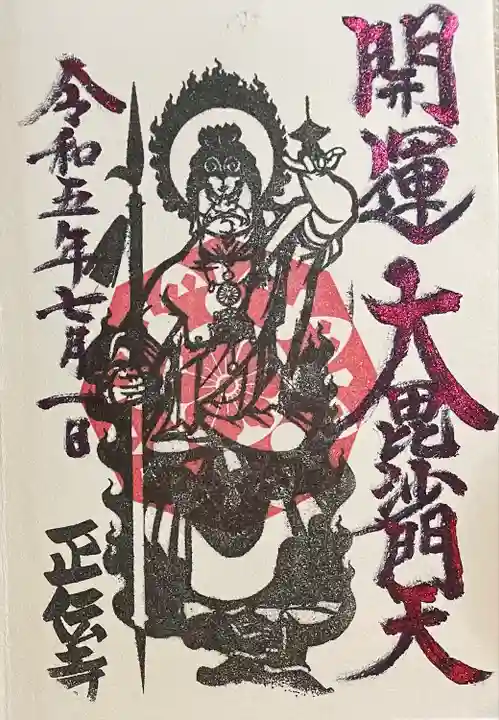 開運 大毘沙門天
令和五年七月一日
正伝寺